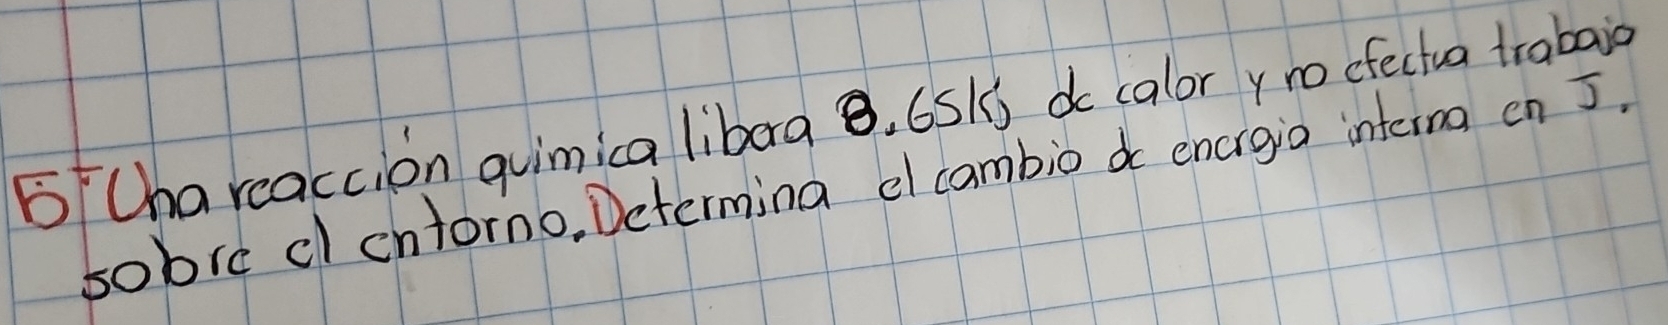 5- Una reacción quimica libera 8.65KJ de calor y no efectua trabajo
sobre el entorno. Determina el cambio de energia interna en J.